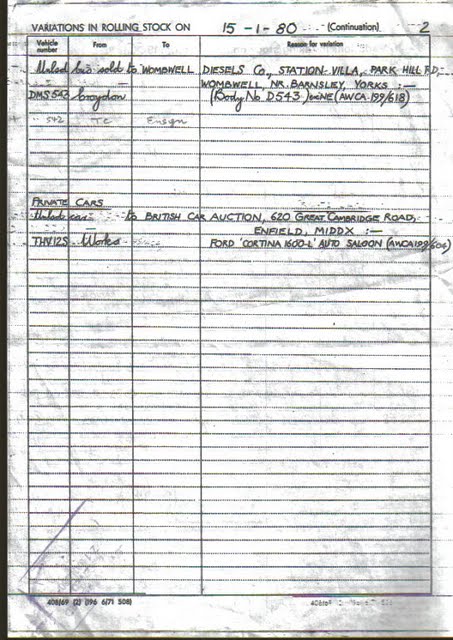 VARIATIONS IN ROLLING STOCK ON 15-1-80 (Continuation) 2
Vehicle number From To Reason for variation
Unlsd bus sold to WOMBWELL DIESELS CO, STATION VILLA, PARK HILL RD,
WOMBWELL, NR. BARNSLEY, YORKS :—
DMS 543 Croydon (Body No D543) (AWCA 199/618)
542 TC Ensign
PRIVATE CARS
Unlsd car to BRITISH CAR AUCTION, 620 GREAT CAMBRIDGE ROAD,
ENFIELD, MIDDX :—
THV 12S Works FORD 'CORTINA 1600-L' AUTO SALOON (AWCA 199/604)
408/69 (2) (196 6/71 SOB)